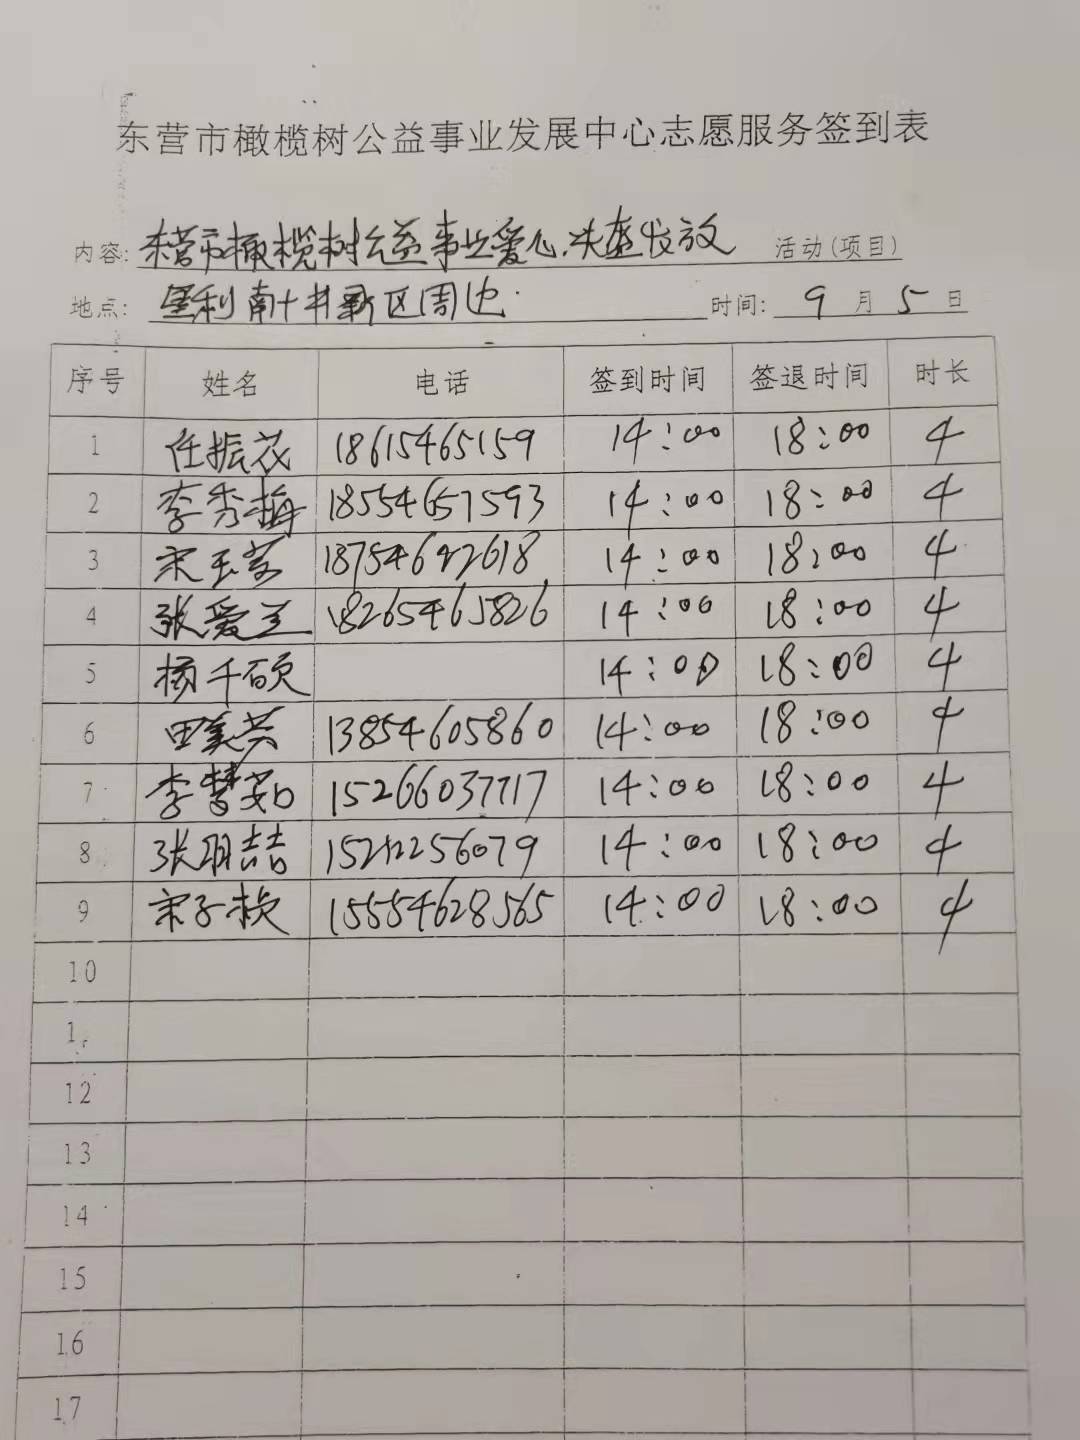 东营市橄榄树公益事业发展中心志愿服务签到表
内容: 东营市橄榄树公益事业爱心水壶发放 活动(项目)
地点: 垦利南十井新区周边 时间: 9 月 5 日
序号 姓名 电话 签到时间 签退时间 时长
1 任振花 18615465159 14:00 18:00 4
2 李秀梅 18554657593 14:00 18:00 4
3 宋玉 18754622618 14:00 18:00 4
4 张爱兰 18265465826 14:00 18:00 4
5 杨千硕 14:00 18:00 4
6 田美芸 13854605860 14:00 18:00 4
7 李慧茹 15266037717 14:00 18:00 4
8 张明喆 14:00 18:00 4
9 宋子桢 15554628565 14:00 18:00 4
10
1
12
13
14
15
16
17